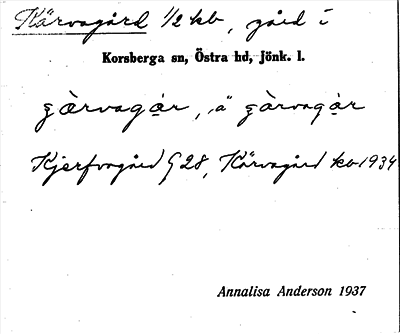 Kärvagård 1/2 kb, gård i
Korsberga sn, Östra hd, jönk. l.
ʒærvagạr, ä ʒàrvagạ̀r
Kjerfvagård G 28, Kärvagård kb 1934
Annalisa Anderson 1937